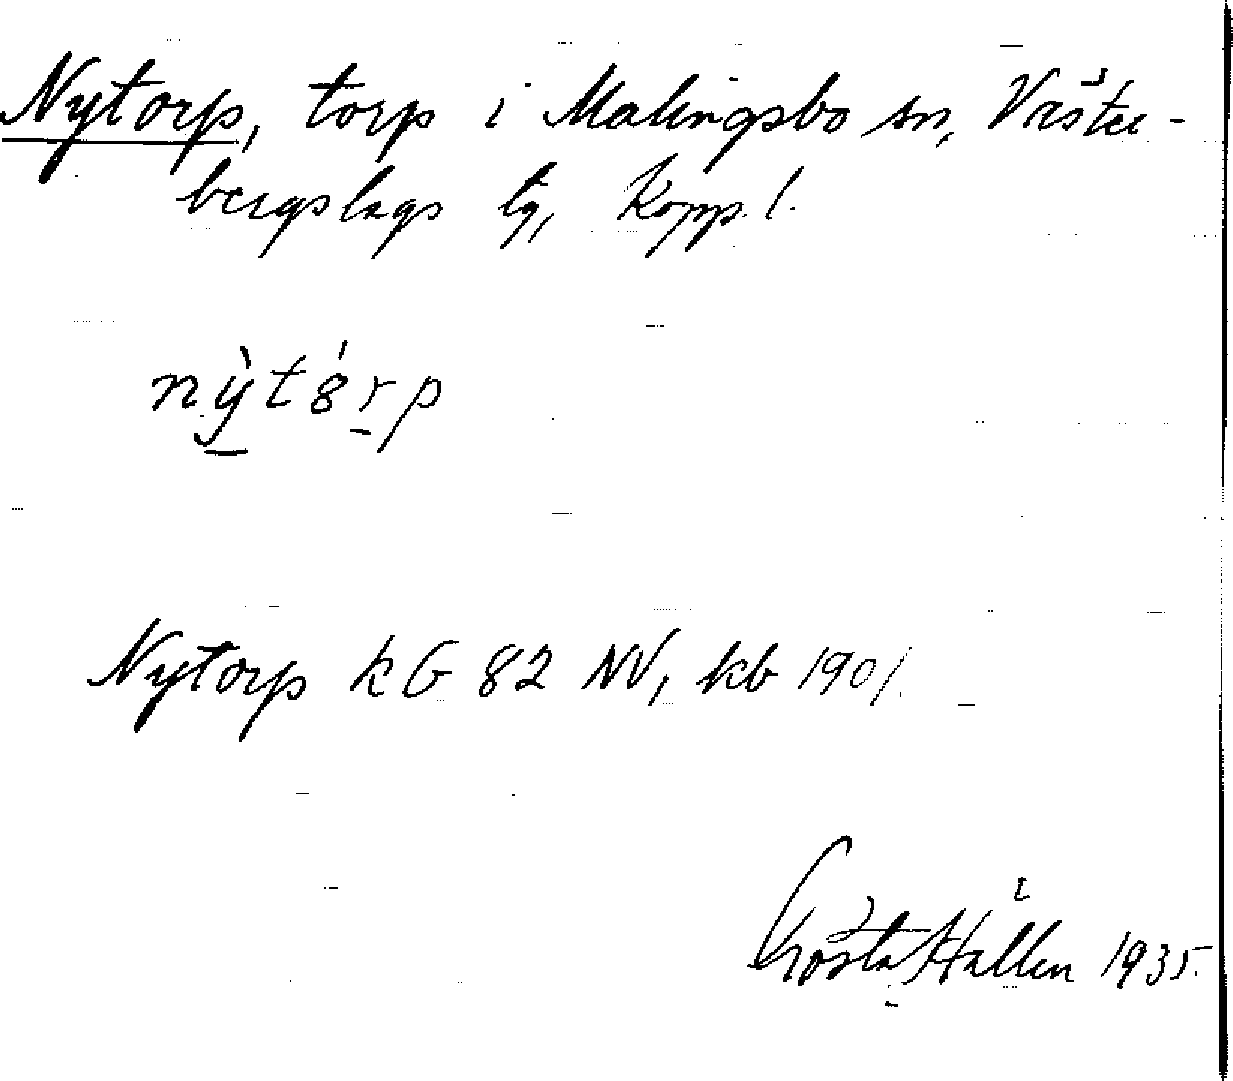 Nytorp, torp i Malingsbo sn, Väster-
bergslags tg, Kopp. l.
nỳtó̀rp
Nytorp kG 82 NV, kb 1901.
Gösta Hallén 1935.